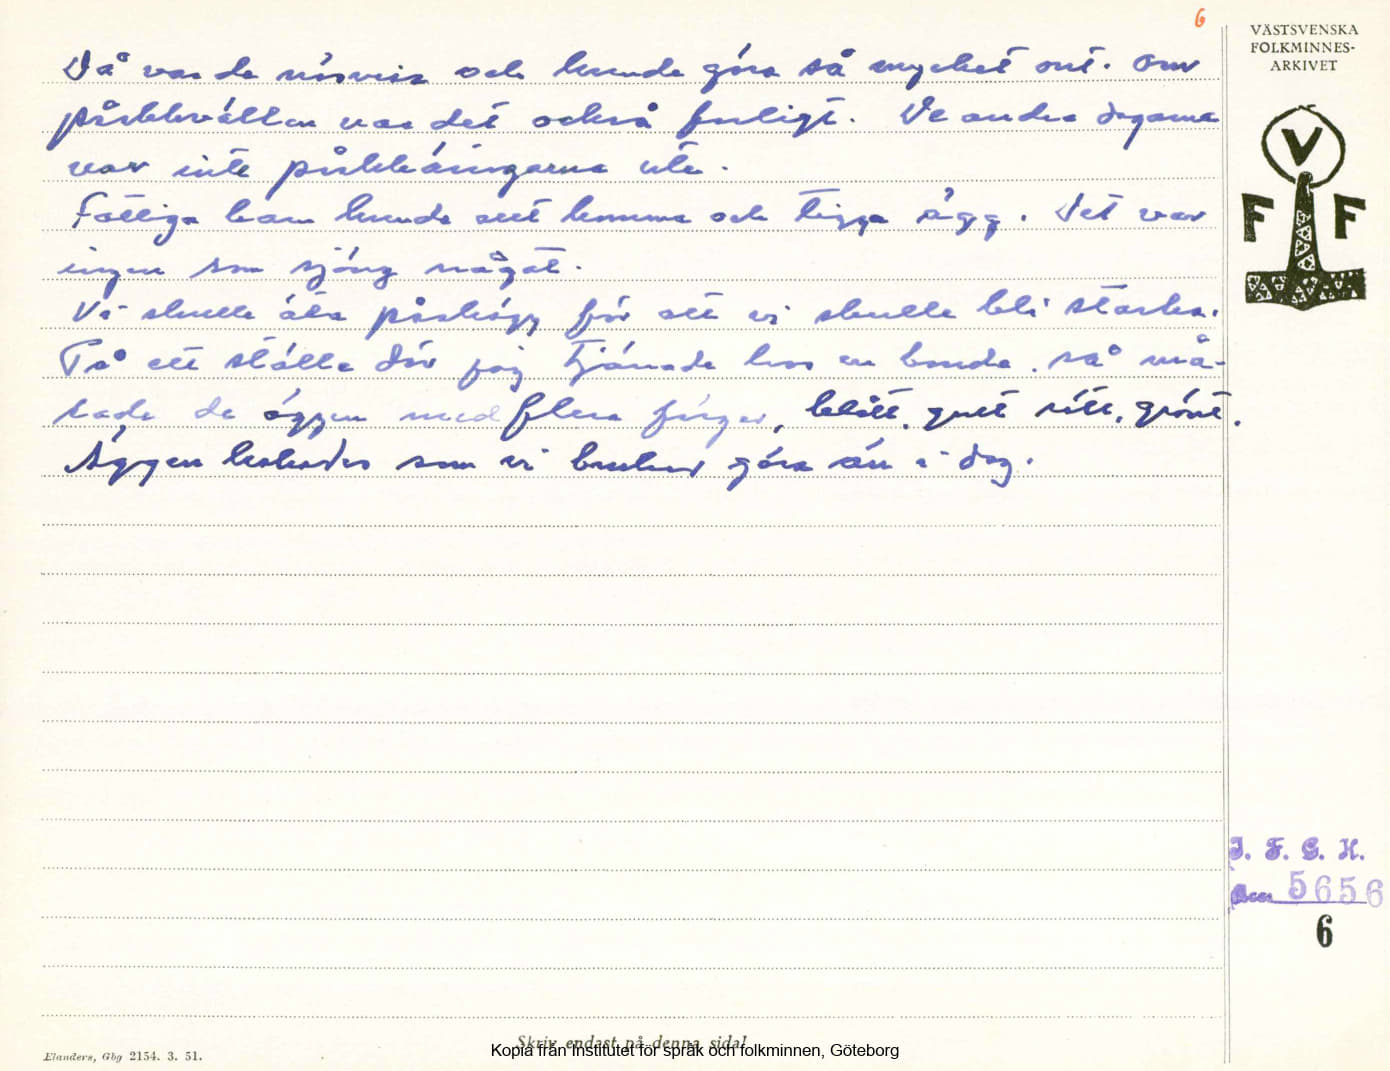 6
VÄSTSVENSKA
FOLKMINNES-
ARKIVET
V
F F
Då var de näsvisa och kunde göra så mycket ont. Om
påskkvällen var det också farligt. De andra dagarna
var inte påskkäringarna ute.
Fattiga barn kunde att komma och tigga ägg. Det var
ingen som sjöng något.
Vi skulle äta påskägg för att vi skulle bli starka.
På ett ställe där jag tjänade hos en bonde, så må-
lade de äggen med flera färger, blått, gult rött, grönt.
Äggen kokades som vi brukar göra än i dag.
I. F. G. H.
Acc 5656
6
Skriv endast på denna sida!
Elanders, Gbg 2154. 3. 51.
Kopia från Institutet för språk och folkminnen, Göteborg